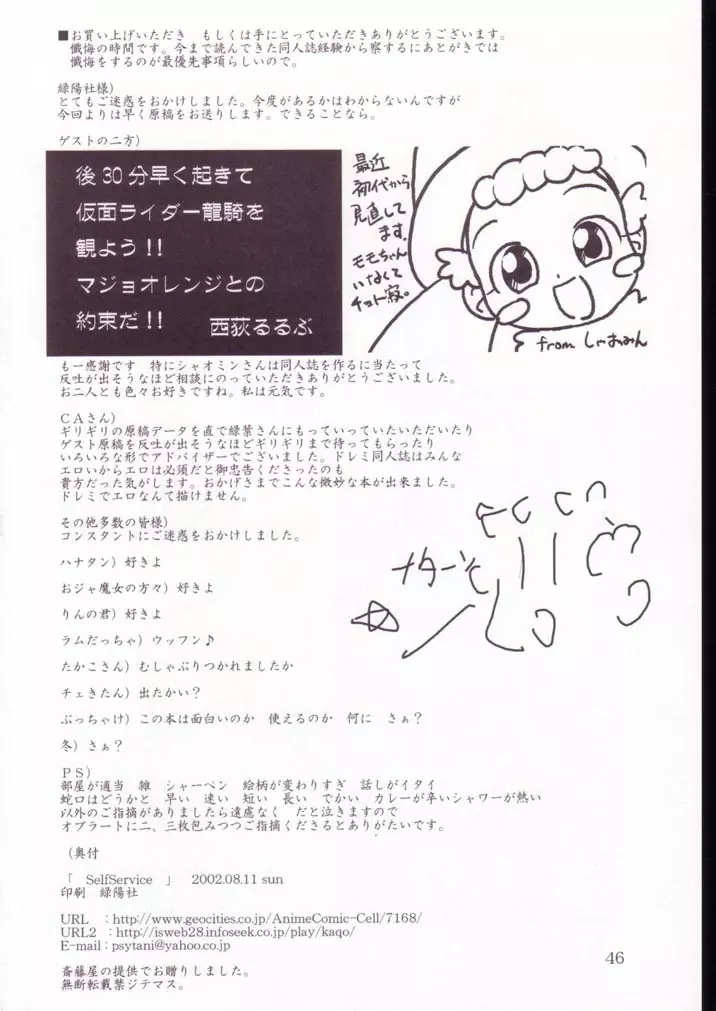 ■お買い上げいただき　もしくは手にとっていただきありがとうございます。
懺悔の時間です。今まで読んできた同人誌経験から察するにあとがきでは
懺悔をするのが最優先事項らしいので。
緑陽社様）
とてもご迷惑をおかけしました。今度があるかはわからないんですが
今回よりは早く原稿をお送りします。できることなら。
ゲストの二方）
後30分早く起きて
仮面ライダー龍騎を
観よう！！
マジョオレンジとの
約束だ！！　西荻るるぶ
最近
初代から
見直して
ます。
モモちゃん
いなくて
チョト寂。
from しゃおみん
も一感謝です　特にシャオミンさんは同人誌を作るに当たって
反吐が出そうなほど相談にのっていただきありがとうございました。
お二人とも色々お好きですね。私は元気です。
ＣＡさん）
ギリギリの原稿データを直で緑葉さんにもっていっていたいただいたり
ゲスト原稿を反吐が出そうなほどギリギリまで待ってもらったり
いろいろな形でアドバイザーでございました。ドレミ同人誌はみんな
エロいからエロは必須だと御忠告くださったのも
貴方だった気がします。おかげさまでこんな微妙な本が出来ました。
ドレミでエロなんて描けません。
その他多数の皆様）
コンスタントにご迷惑をおかけしました。
ハナタン）好きよ
おジャ魔女の方々）好きよ
りんの君）好きよ
ラムだっちゃ）ウッフン♪
たかこさん）むしゃぶりつかれましたか
チェきたん）出たかい？
ぶっちゃけ）この本は面白いのか　使えるのか　何に　さぁ？
冬）さぁ？
ＰＳ）
部屋が適当　雑　シャーペン　絵柄が変わりすぎ　話しがイタイ
蛇口はどうかと　早い　速い　短い　長い　でかい　カレーが辛いシャワーが熱い
以外のご指摘がありましたら遠慮なく　だと泣きますので
オブラートに二、三枚包みつつご指摘くださるとありがたいです。
（奥付
「　SelfService　」　2002.08.11 sun
印刷　緑陽社
URL　：http://www.geocities.co.jp/AnimeComic-Cell/7168/
URL2　：http://isweb28.infoseek.co.jp/play/kaqo/
E-mail：psytani@yahoo.co.jp
斎藤屋の提供でお贈りしました。
無断転載禁ジテマス。
46